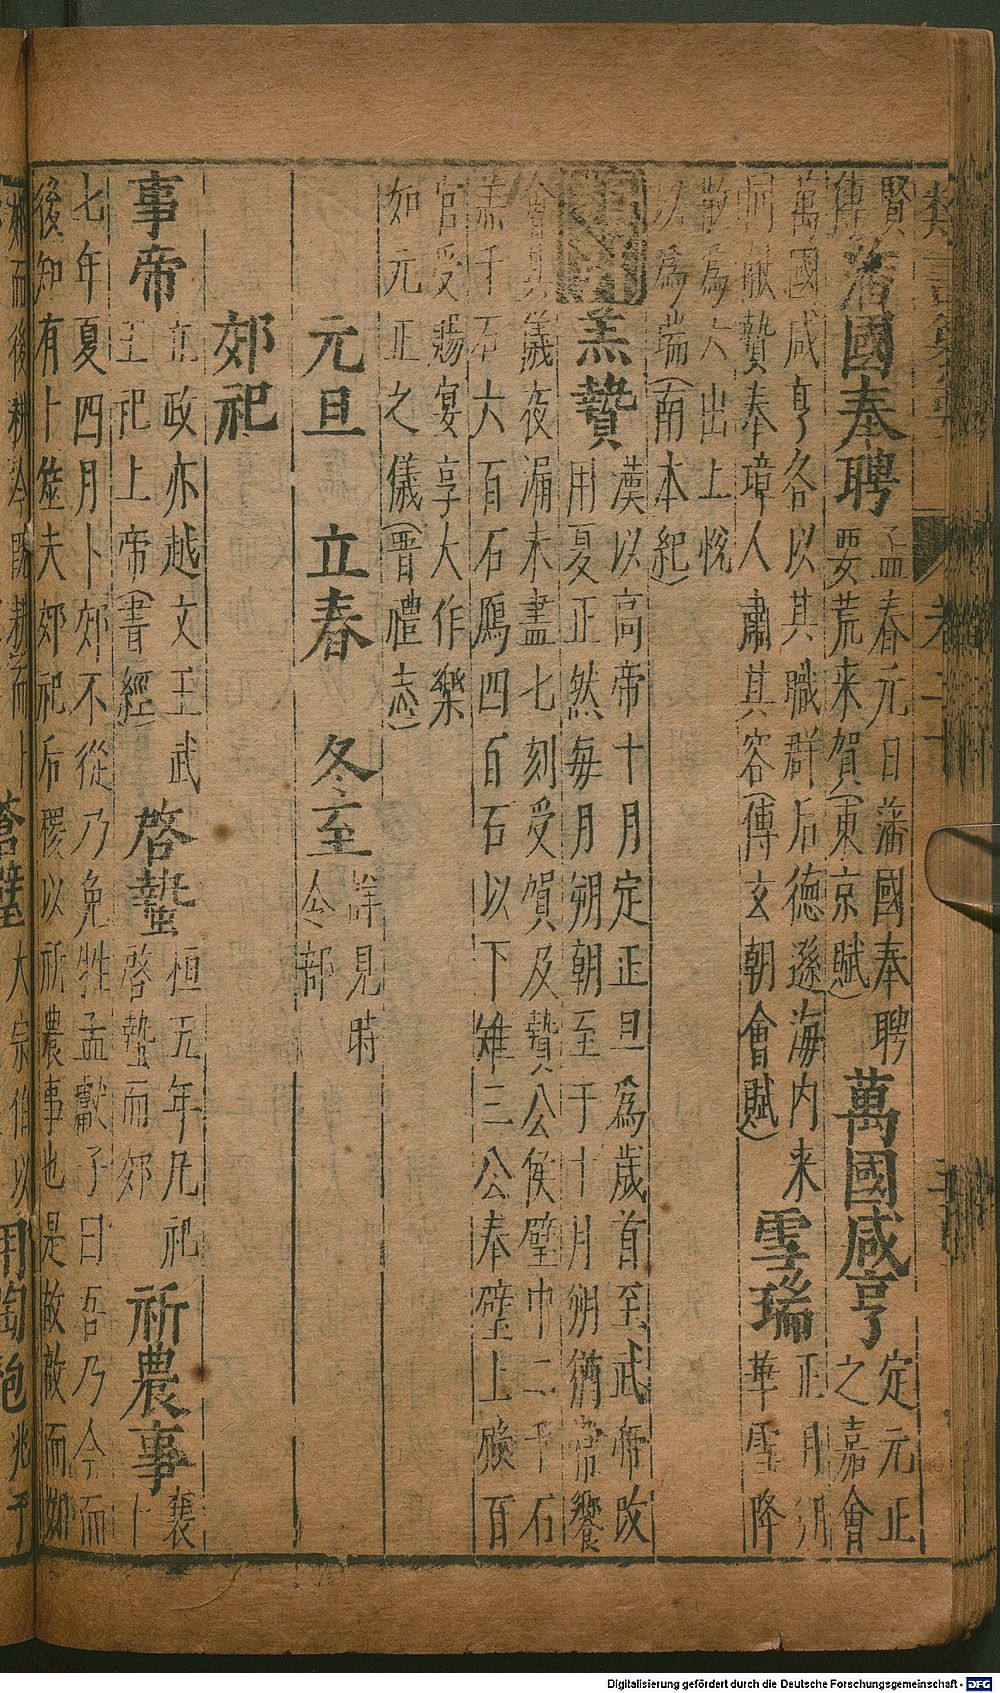 賢
傳
藩國奉聘
孟春元日藩國奉聘
要荒来賀(東京賦)
萬國咸亨
定元正
之嘉會
萬國咸亨各以其職群后德遜海内来
服贄奉璋人肅其容(傳玄朝會賦)
雪瑞
正月朔
華雪降
散為六出上悅
以為瑞(南本紀)
羔贄
漢以高帝十月定正旦為歲首至武帝改
用夏正然每月朔朝至于十月朔猶常饗
會其儀夜漏未盡七刻受賀及贄公侯璧巾二千石
羔千石六百石鴈四百石以下雉三公奉璧上殿百
官受賜宴享大作樂
如元正之儀(晋禮志)
元旦　立春　冬至
詳見時
令部
郊祀
事帝
立政亦越文王武
王祀上帝(書經)
啓蟄
桓五年凡祀
啓蟄而郊
祈農事
襄
卜
七年夏四月卜郊不從乃免牲孟獻子曰吾乃今而
後知有卜筮夫郊祀后稷以祈農事也是故啟而郊
郊而後耕今既耕而卜
蒼璧
大宗伯以
用陶匏
兆于
Digitalisierung gefördert durch die Deutsche Forschungsgemeinschaft - DFG